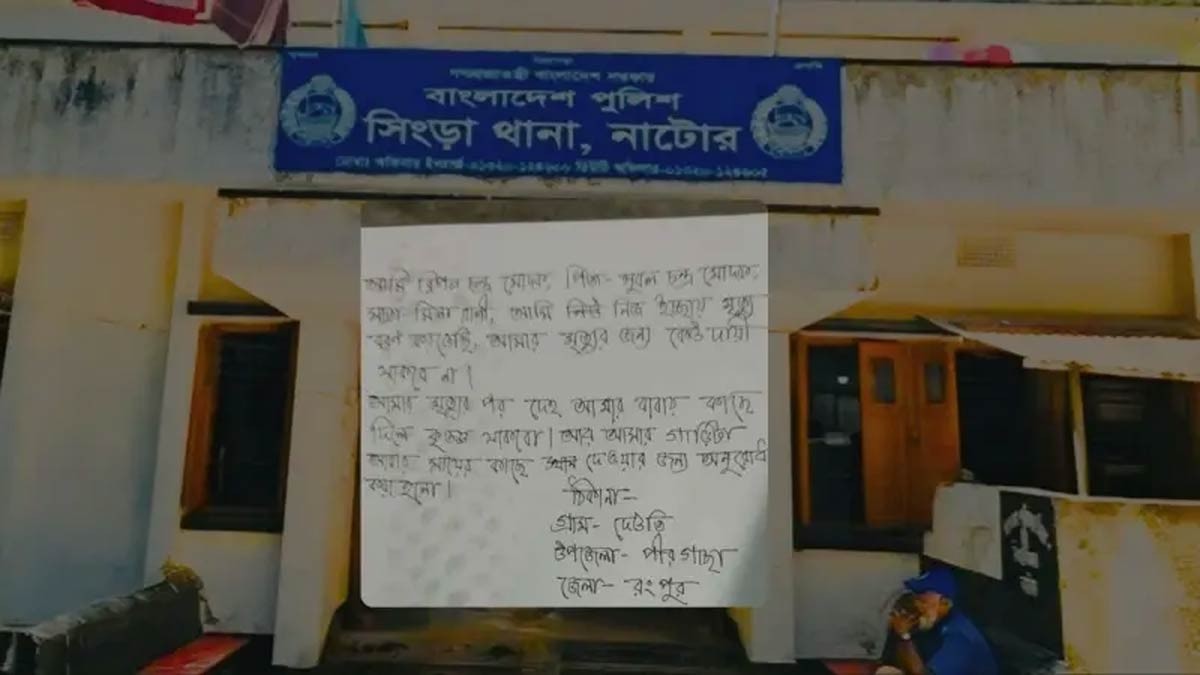 গণপ্রজাতন্ত্রী বাংলাদেশ সরকার
বাংলাদেশ পুলিশ
সিংড়া থানা, নাটোর
আমি চন্দ্র মোদক, পিতা- চন্দ্র মোদক,
মাতা রানী, আমি নিজ ইচ্ছায় মৃত্যু
বরণ করতেছি, আমার মৃত্যুর জন্য কেউ দায়ী
থাকবে না।
আমার মৃত্যুর পর দেহ আমার বাবার কাছে
দিলে কৃতজ্ঞ থাকবো। আর আমার গাড়িটা
আমার মায়ের কাছে দেওয়ার জন্য অনুরোধ
করা হলো।
ঠিকানা-
গ্রাম- দেউতি
উপজেলা- পীরগাছা
জেলা- রংপুর